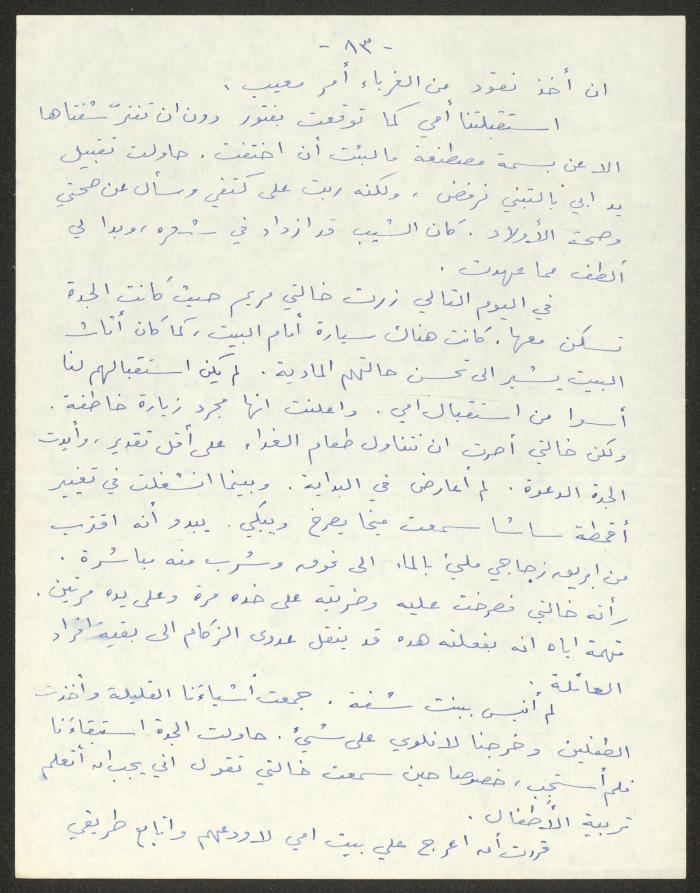 - ٨٣ -
ان أخذ نقود من الغرباء أمر معيب .
استقبلتنا أمي كما توقعت بفتور دون ان تفترّ شفتاها
الا عن بسمة مصطنعة ما لبثت أن اختفت . حاولت تقبيل
يد ابي بالتبني فرفض ، ولكنه ربت على كتفي وسأل عن صحتي
وصحة الأولاد . كان الشيب قد ازداد في شعره ، وبدا لي
ألطف مما عهدت .
في اليوم التالي زرت خالتي مريم حيث كانت الجدة
تسكن معها . كانت هناك سيارة أمام البيت ، كما كان أثاث
البيت يشير الى تحسن حالتهم المادية . لم يكن استقبالهم لنا
أسوا من استقبال امي . واعلنت انها مجرد زيارة خاطفة .
ولكن خالتي أصرت ان نتناول طعام الغداء على أقل تقدير ، وأيدت
الجدة الدعوة . لم أعارض في البداية . وبينما انشغلت في تغيير
أقمطة ساشا سمعت ميخا يصرخ ويبكي . يبدو أنه اقترب
من ابريق زجاجي مليئ بالماء الى فوقه وشرب منه مباشرة .
رأته خالتي فصرخت عليه وضربته على خده مرة وعلى يده مرتين .
متهمة اياه انه بفعلته هذه قد ينقل عدوى الزكام الى بقية افراد
العائلة .
لم أنبس ببنت شفة . جمعت أشياءنا القليلة وأخذت
الطفلين وخرجنا لا نلوي على شيئ . حاولت الجدة استبقاءنا
فلم أستجب ، خصوصا حين سمعت خالتي تقول اني يجب ان أتعلم
تربية الأطفال .
قررت أن اعرج على بيت امي لاودعهم واتابع طريقي